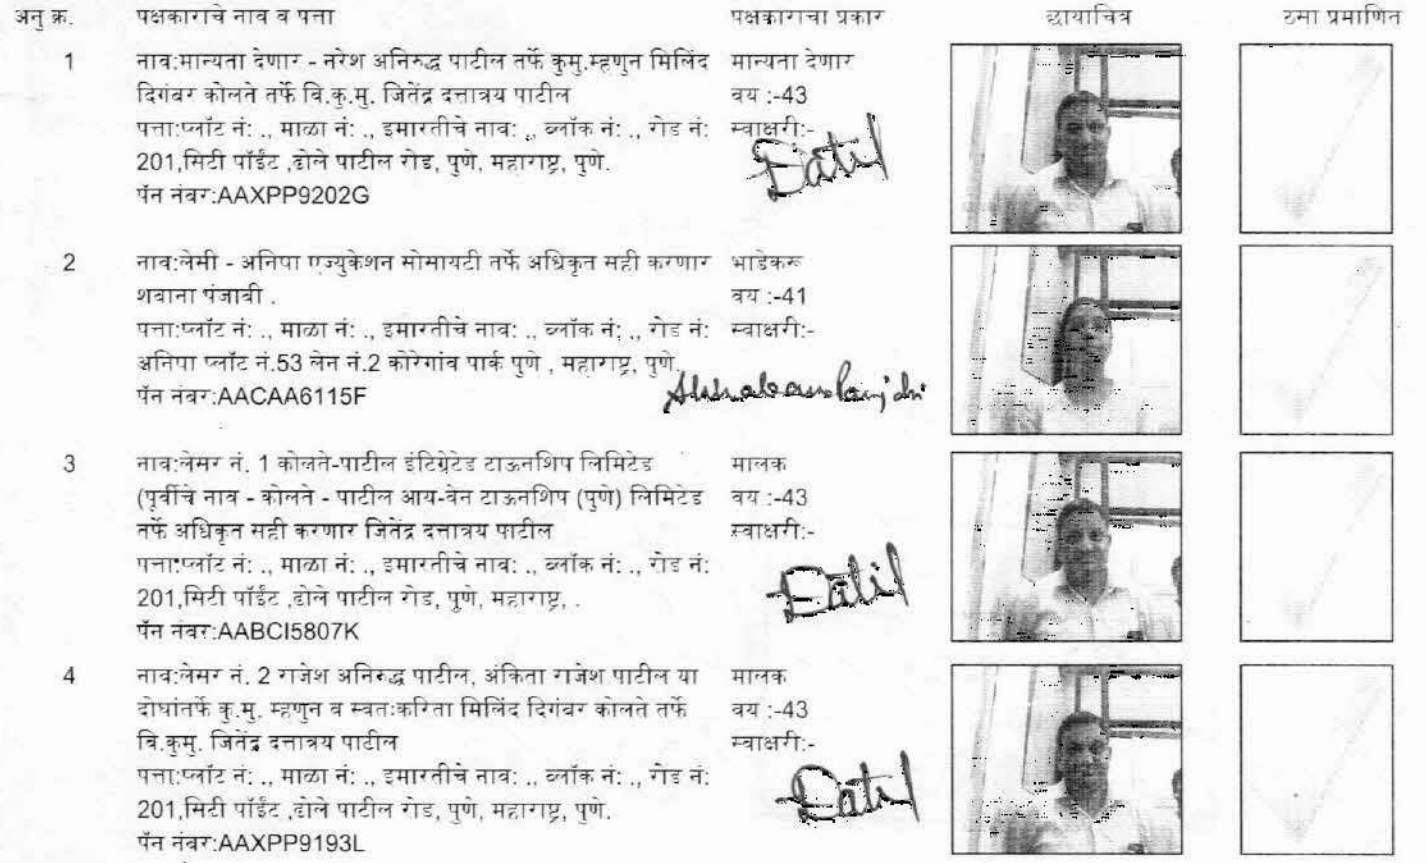 अनु क्र. पक्षकाराचे नाव व पत्ता पक्षकाराचा प्रकार छायाचित्र ठसा प्रमाणित
1 नाव:मान्यता देणार - नरेश अनिरुद्ध पाटील तर्फे कुमु.म्हणुन मिलिंद मान्यता देणार
दिगंबर कोलते तर्फे वि.कु.मु. जितेंद्र दत्तात्रय पाटील वय :-43
पत्ता:प्लॉट नं: ., माळा नं: ., इमारतीचे नाव: ., ब्लॉक नं: ., रोड नं: स्वाक्षरी:-
201,सिटी पॉईंट ,ढोले पाटील रोड, पुणे, महाराष्ट्र, पुणे.
पॅन नंबर:AAXPP9202G
2 नाव:लेसी - अनिपा एज्युकेशन सोसायटी तर्फे अधिकृत सही करणार भाडेकरू
शबाना पंजाबी . वय :-41
पत्ता:प्लॉट नं: ., माळा नं: ., इमारतीचे नाव: ., ब्लॉक नं: ., रोड नं: स्वाक्षरी:-
अनिपा प्लॉट नं.53 लेन नं.2 कोरेगांव पार्क पुणे , महाराष्ट्र, पुणे.
पॅन नंबर:AACAA6115F
3 नाव:लेसर नं. 1 कोलते-पाटील इंटिग्रेटेड टाऊनशिप लिमिटेड मालक
(पूर्वीचे नाव - कोलते - पाटील आय-वेन टाऊनशिप (पुणे) लिमिटेड वय :-43
तर्फे अधिकृत सही करणार जितेंद्र दत्तात्रय पाटील स्वाक्षरी:-
पत्ता:प्लॉट नं: ., माळा नं: ., इमारतीचे नाव: ., ब्लॉक नं: ., रोड नं:
201,सिटी पॉईंट ,ढोले पाटील रोड, पुणे, महाराष्ट्र, .
पॅन नंबर:AABCI5807K
4 नाव:लेसर नं. 2 राजेश अनिरुद्ध पाटील, अंकिता राजेश पाटील या मालक
दोघांतर्फे कु.मु. म्हणुन व स्वतःकरिता मिलिंद दिगंबर कोलते तर्फे वय :-43
वि.कुमु. जितेंद्र दत्तात्रय पाटील स्वाक्षरी:-
पत्ता:प्लॉट नं: ., माळा नं: ., इमारतीचे नाव: ., ब्लॉक नं: ., रोड नं:
201,सिटी पॉईंट ,ढोले पाटील रोड, पुणे, महाराष्ट्र, पुणे.
पॅन नंबर:AAXPP9193L